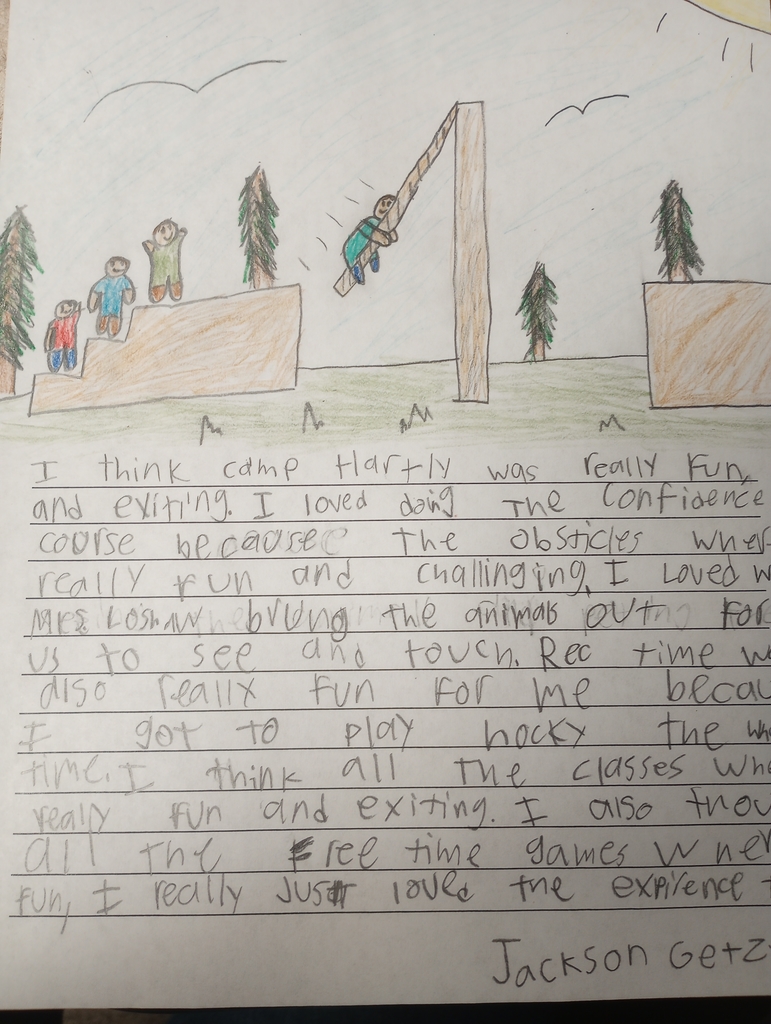 I think camp Hartly was really Fun,
and exiting. I loved doing The Confidence
course because the obsticles wher
really fun and challinging, I Loved w
Mrs brung the animals out For
us to see and touch. Rec time w
also really fun for me becau
I got to play hocky the
time. I think all the classes whe
really fun and exiting. I also thou
all the Free time games wher
fun, I really Just loved the expirence
Jackson Getz